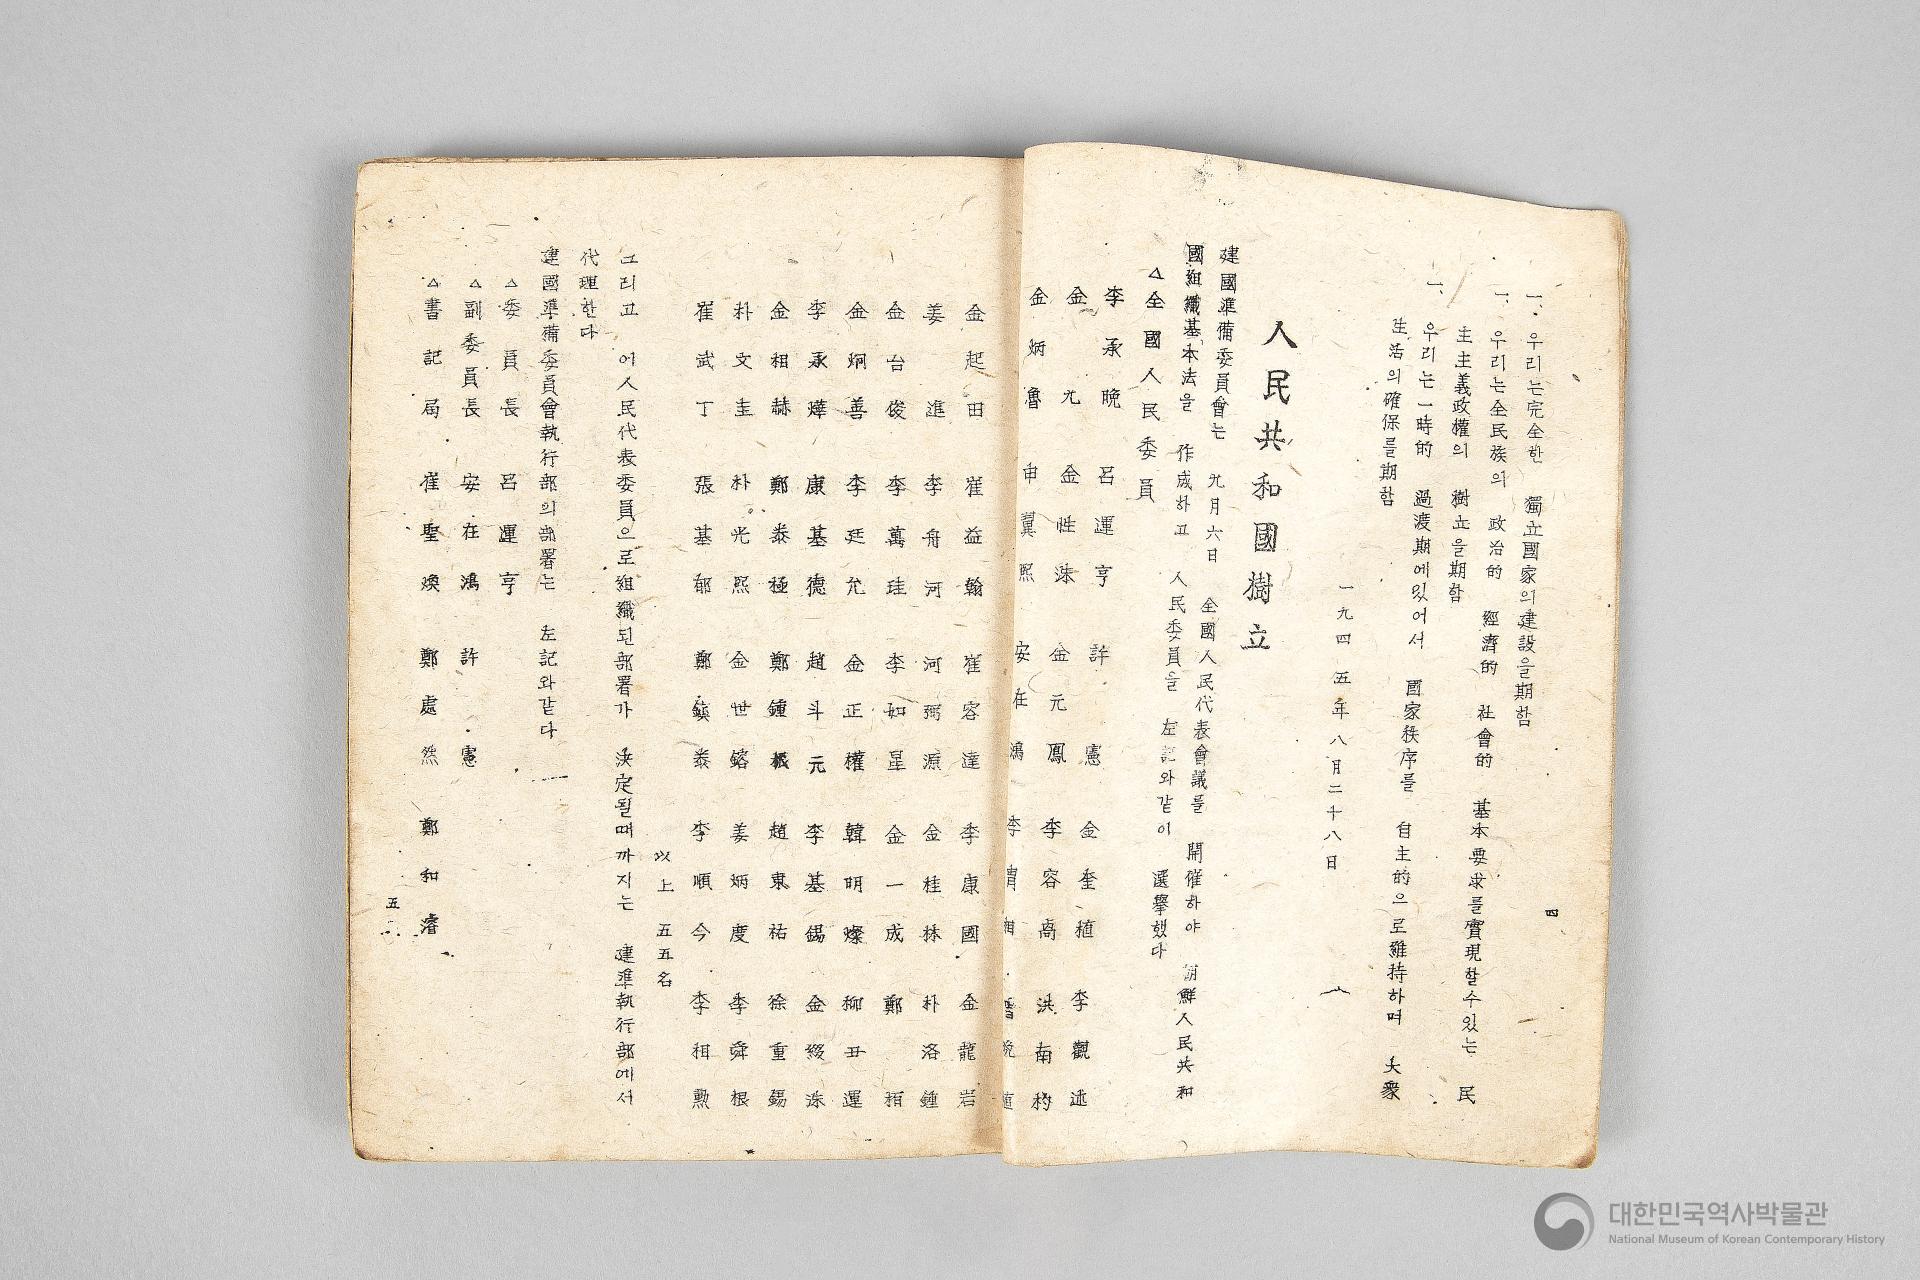 一. 우리는完全한 獨立國家의建設을期함
一. 우리는全民族의 政治的 經濟的 社會的 基本要求를實現할수있는 民
主主義政權의 樹立을期함
一. 우리는一時的 過渡期에있어서 國家秩序를 自主的으로維持하며 大衆
生活의確保를期함
一九四五年八月二十八日
人民共和國樹立
建國準備委員會는 九月六日 全國人民代表會議를 開催하야 朝鮮人民共和
國組織基本法을 作成하고 人民委員을 左記와같이 選擧했다
△全國人民委員
李承晩 呂運亨 許憲 金奎植 李觀述
金九 金性洙 金元鳳 李容卨 洪南杓
金炳魯 申翼熙 安在鴻 李
四
金起田 崔益翰 崔容達 李康國 金龍岩
姜進 李舟河 河弼源 金桂林 朴洛鍾
金台俊 李萬珪 李如星 金一成 鄭栢
金炯善 李廷允 金正權 韓明燦 柳丑運
李承燁 康基德 趙斗元 李基錫 金綴洙
金相赫 鄭泰植 鄭鍾根 趙東祐 徐重錫
朴文圭 朴光熙 金世鎔 姜炳度 李舜根
崔武丁 張基郁 鄭鎭泰 李順今 李相勲
以上 五五名
그리고 이人民代表委員으로組織된部署가 決定될때까지는 建準執行部에서
代理한다
建國準備委員會執行部의部署는 左記와같다
△委員長 呂運亨
△副委員長 安在鴻 許憲
△書記局 崔聖煥 鄭處然 鄭和濬
五
대한민국역사박물관
National Museum of Korean Contemporary History